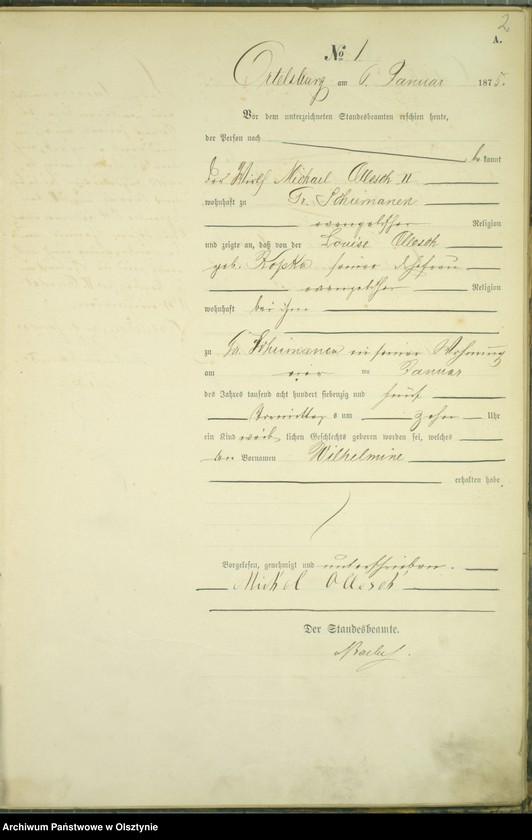 2
A.
No 1
Ortelsburg am 6. Januar 1875.
Vor dem unterzeichneten Standesbeamten erschien heute,
der Person nach
bekannt
der Wirth Michael Ollesch II
wohnhaft zu Gr. Schiemanen
evangelischer Religion
und zeigte an, daß von der Louise Ollesch
geb. Kopka seiner Ehefrau
evangelischer Religion
wohnhaft bei ihm
zu Gr. Schiemanen in seiner Wohnung
am vier ten Januar
des Jahres tausend acht hundert siebenzig und fünf
Vormittags um zehn Uhr
ein Kind weib lichen Geschlechts geboren worden sei, welches
den Vornamen Wilhelmine
erhalten habe.
Vorgelesen, genehmigt und unterschrieben.
Michel Ollesch
Der Standesbeamte.
Archiwum Państwowe w Olsztynie